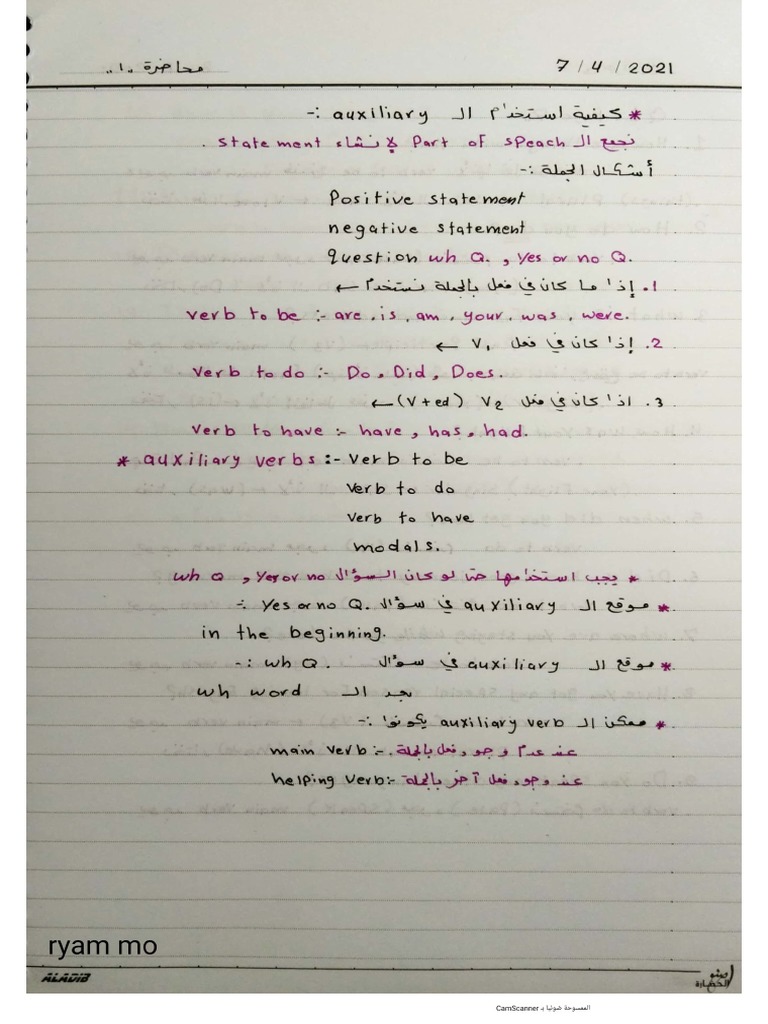 محاضرة ١.. 7 / 4 / 2021
* كيفية استخدام الـ auxiliary :-
نجمع الـ Part of speach لإنشاء statement .
أشكال الجملة :-
Positive statement
negative statement
Question wh Q. , Yes or no Q.
1. إذا ما كان في فعل بالجملة نستخدم ←
verb to be :- are , is , am , your , was , were.
2. إذا كان في فعل V1 ←
verb to do :- Do , Did , Does.
3. اذا كان في فعل V2 (V+ed) ←
verb to have :- have , has , had.
* auxiliary verbs :- verb to be
verb to do
verb to have
modals.
* يجب استخدامها حتا لو كان السؤال wh Q , Yes or no
* موقع الـ auxiliary في سؤال Yes or no Q. :-
in the beginning.
* موقع الـ auxiliary في سؤال wh Q. :-
بعد الـ wh word
* ممكن الـ auxiliary verb يكونوا :-
main verb :- عند عدم وجود فعل بالجملة.
helping verb:- عند وجود فعل آخر بالجملة
ryam mo
ALADIB
الممسوحة ضوئيا بـ CamScanner